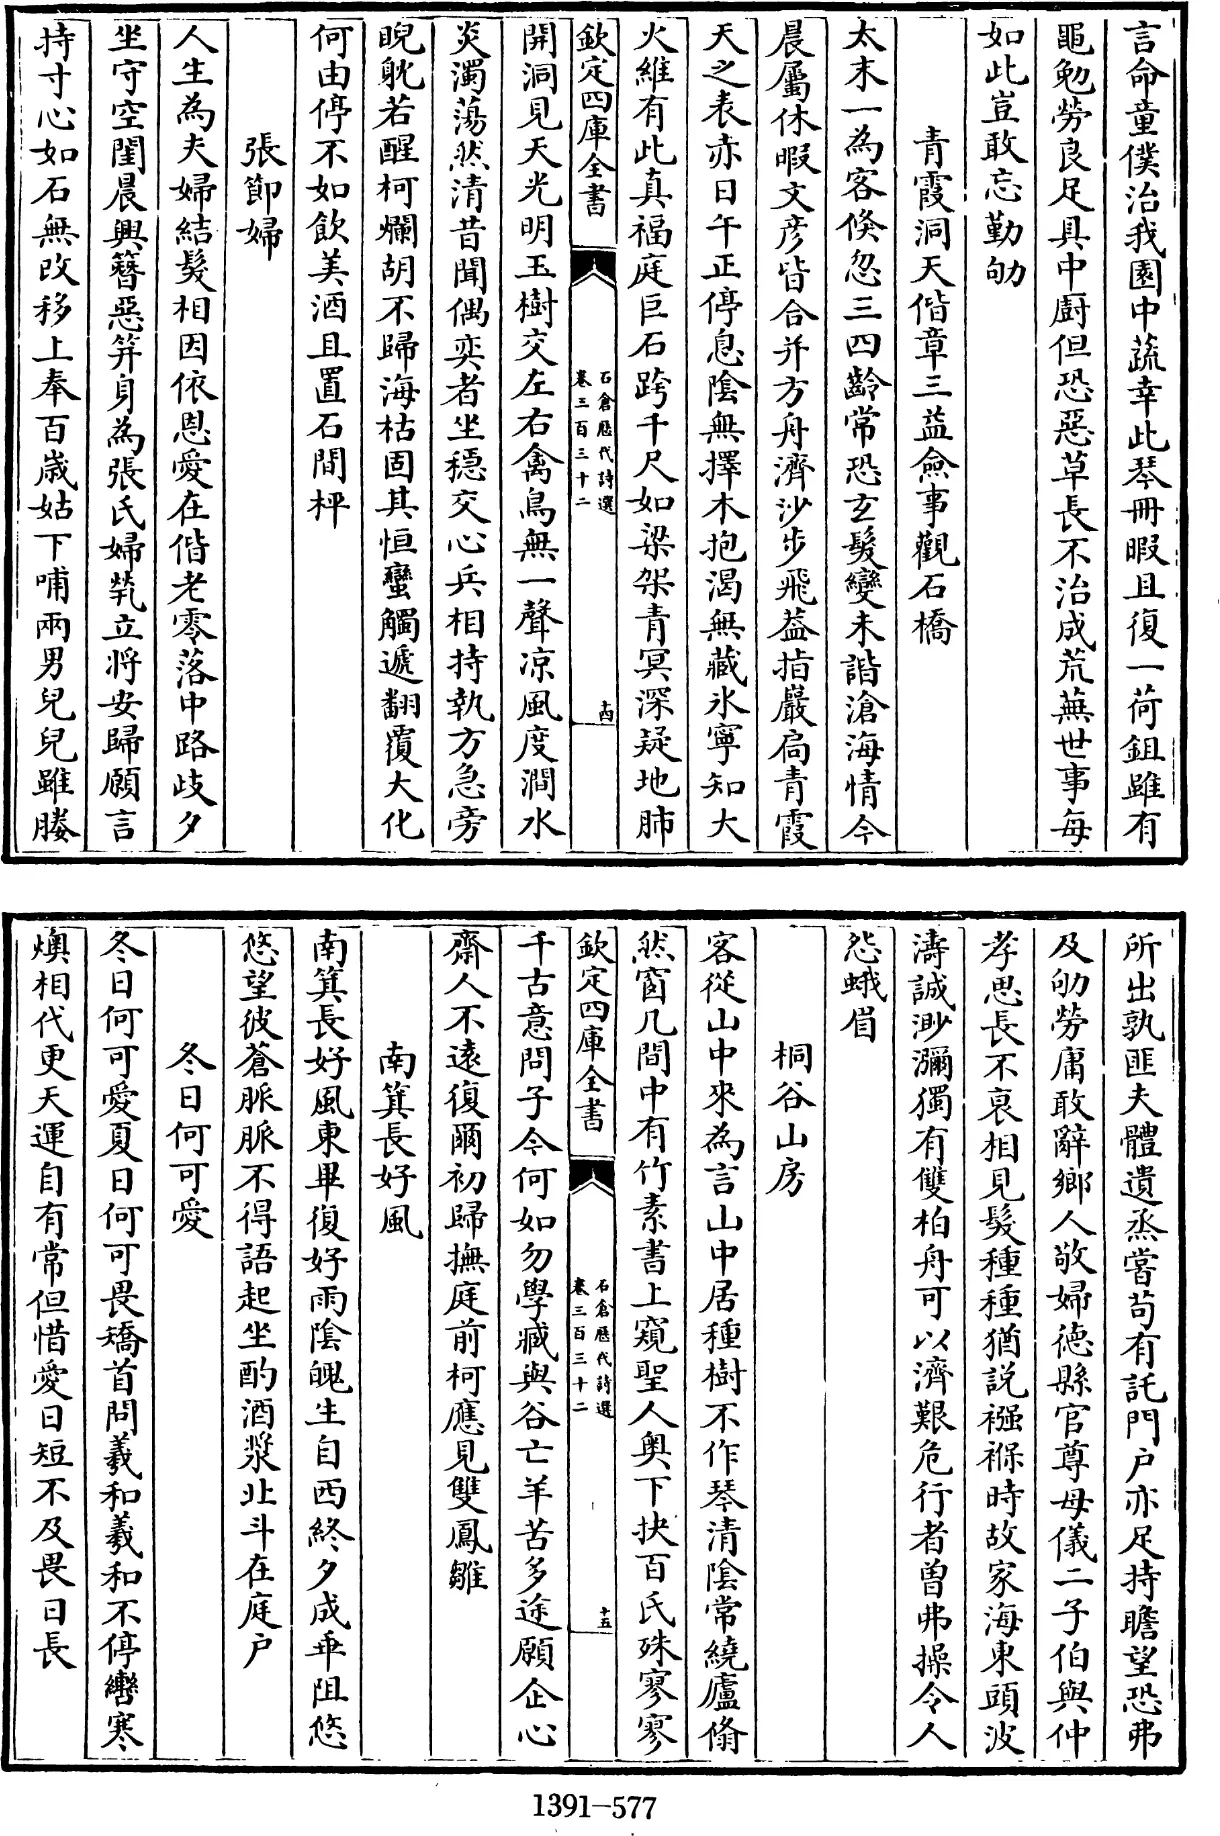 言命童僕治我園中蔬幸此琴冊暇且復一荷鉏雖有
黽勉勞良足具中厨但恐惡草長不治成荒蕪世事每
如此豈敢忘勤劬
青霞洞天偕章三益僉事觀石橋
太末一為客倏忽三四齡常恐玄髮變未諧滄海情今
晨屬休暇文彥皆合并方舟濟沙步飛葢指巖扃青霞
天之表赤日午正停息陰無擇木抱渴無藏氷寧知大
火維有此真福庭巨石跨千尺如梁架青冥深疑地肺
欽定四庫全書
石倉歷代詩選
卷三百三十二
十四
開洞見天光明玉樹交左右禽鳥無一聲凉風度澗水
炎濁蕩然清昔聞偶奕者坐穩交心兵相持執方急旁
睨躭若醒柯爛胡不歸海枯固其恒蠻觸遞翻覆大化
何由停不如飲美酒且置石間枰
張節婦
人生為夫婦結髮相因依恩愛在偕老零落中路歧夕
坐守空閨晨興簪惡笄身為張氏婦煢立將安歸願言
持寸心如石無改移上奉百歲姑下哺兩男兒兒雖媵
所出孰匪夫體遺烝嘗苟有託門戸亦足持瞻望恐弗
及劬勞庸敢辭鄉人敬婦徳縣官尊母儀二子伯與仲
孝思長不衰相見髮種種猶説襁褓時故家海東頭波
濤誠渺瀰獨有雙柏舟可以濟艱危行者曽弗操令人
怨蛾眉
桐谷山房
客從山中來為言山中居種樹不作琴清陰常繞廬翛
然窗几間中有竹素書上窺聖人奥下抉百氏殊寥寥
欽定四庫全書
石倉歷代詩選
卷三百三十二
十五
千古意問子今何如勿學臧與谷亡羊苦多途願企心
齋人不遠復爾初歸撫庭前柯應見雙鳳雛
南箕長好風
南箕長好風東畢復好雨陰魄生自西終夕成乖阻悠
悠望彼蒼脈脈不得語起坐酌酒漿北斗在庭戸
冬日何可愛
冬日何可愛夏日何可畏矯首問羲和羲和不停轡寒
燠相代更天運自有常但惜愛日短不及畏日長
1391-577